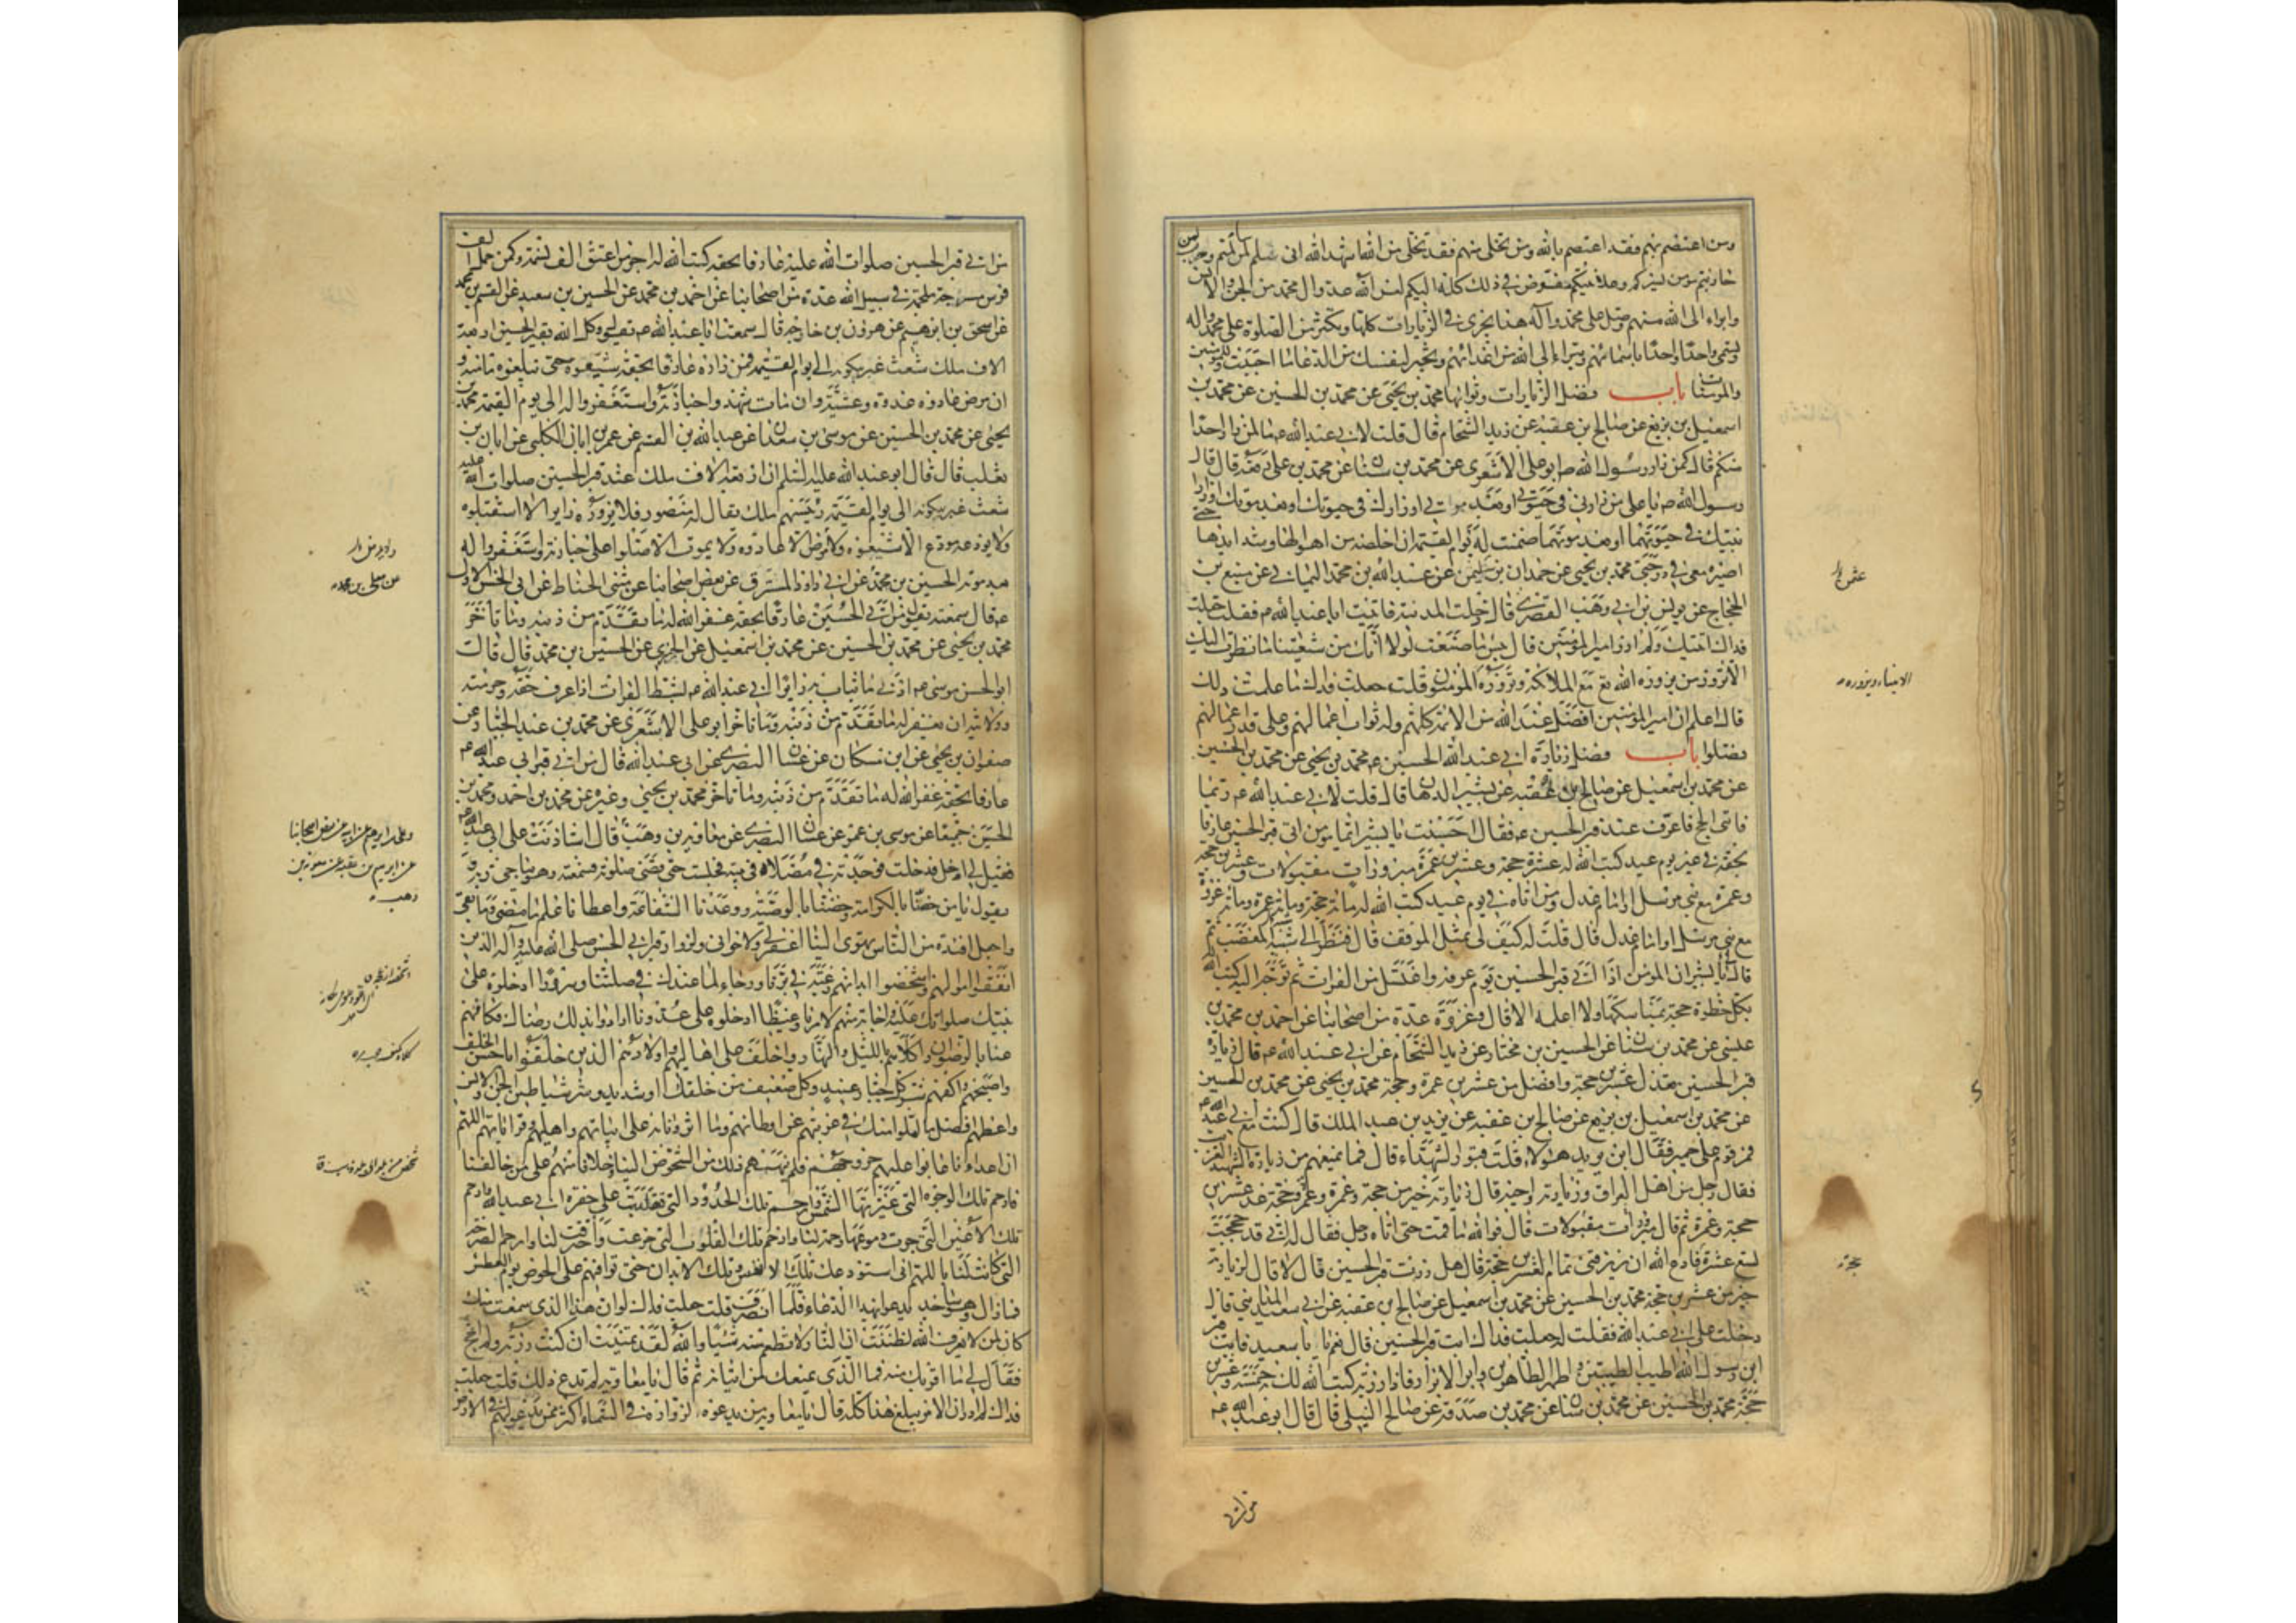 ومن اعتصم بهم فقد اعتصم بالله ومن تخلى منهم فقد تخلى من الله اشهد الله انى سلم لمن سالمتم وحرب لمن
حاربتم مؤمن بسركم وعلانيتكم مفوض فى ذلك كله اليكم لعن الله عدو ال محمد من الجن والانس
وابراء الى الله منهم وصلى على محمد وآله هذا يجزى فى الزيارات كلها وتكثر من الصلوة على محمد واله
وتسمى واحدا واحدا باسمائهم وتبراء الى الله من اعدائهم وتخير لنفسك من الدعا ما احببت وللمؤمنين
والمؤمنات باب فضل الزيارات وثوابها محمد بن يحيى عن محمد بن الحسين عن محمد بن
اسمعيل بن بزيع عن صالح بن عقبة عن زيد الشحام قال قلت لابى عبد الله ع ما لمن زار احدا
منكم قال كمن زار رسول الله ص ابو على الاشعرى عن محمد بن سنان عن محمد بن على رفعه قال قال
رسول الله ص يا على من زارنى فى حيوتى او بعد موتى او زارك فى حيوتك او بعد موتك او زار
ابنيك فى حيوتهما او بعد موتهما ضمنت له يوم القيمة ان اخلصه من اهوالها وشدايدها حتى
اصيره معى فى درجتى محمد بن يحيى عن حمدان بن سليمن عن عبد الله بن محمد اليمانى عن منيع بن
الحجاج عن يونس بن ابى وهب القصرى قال دخلت المدينة فاتيت ابا عبد الله ع فقلت جعلت
فداك اتيتك ولم ازر امير المؤمنين قال بئس ما صنعت لولا انك من شيعتنا ما نظرت اليك
الا تزور من يزوره الله تع مع الملائكة ويزوره المؤمنون قلت جعلت فداك ما علمت ذلك
قال اعلم ان امير المؤمنين افضل عند الله من الائمة كلهم وله ثواب اعمالهم وعلى قدر اعمالهم
فضلوا باب فضل زيارة ابى عبد الله الحسين ع محمد بن يحيى عن محمد بن الحسين
عن محمد بن اسمعيل عن صالح بن عقبة عن بشير الدهان قال قلت لابى عبد الله ع ربما
فاتنى الحج فاعرف عند قبر الحسين ع فقال احسنت يا بشير ايما مؤمن اتى قبر الحسين عارفا
بحقه فى غير يوم عيد كتب الله له عشرين حجة وعشرين عمرة مبرورات مقبولات وعشرين حجة
وعمرة مع نبى مرسل او امام عدل ومن اتاه فى يوم عيد كتب الله له مائة حجة ومائة عمرة ومائة غزوة
مع نبى مرسل او امام عدل قال قلت له كيف لى بمثل الموقف قال فنظر الى شبه المغضب ثم
قال لى يا بشير ان المؤمن اذا اتى قبر الحسين يوم عرفة واغتسل من الفرات ثم توجه اليه كتب الله له
بكل خطوة حجة بمناسكها ولا اعلمه الا قال وغزوة عدة من اصحابنا عن احمد بن محمد بن
عيسى عن محمد بن سنان عن الحسين بن مختار عن زيد الشحام عن ابى عبد الله ع قال زيارة
قبر الحسين تعدل عشرين حجة وافضل من عشرين عمرة وحجة محمد بن يحيى عن محمد بن الحسين
عن محمد بن اسمعيل بن بزيع عن صالح بن عقبة عن يزيد بن عبد الملك قال كنت مع ابى عبد الله ع
فمر قوم على حمير فقال اين يريد هؤلاء قلت قبور الشهداء قال فما يمنعهم من زيارة الشهيد الغريب
فقال رجل من اهل العراق وزيارته واجبة قال زيارته خير من حجة وعمرة وعمرة وحجة عد عشرين
حجة وعمرة ثم قال مبرورات مقبولات قال فوالله ما قمت حتى اتاه رجل فقال له انى قد حججت
تسع عشرة فادع الله ان يرزقنى تمام العشرين حجة قال هل زرت قبر الحسين قال لا قال لزيارته
خير من عشرين حجة محمد بن الحسين عن محمد بن اسمعيل عن صالح بن عقبة عن ابى سعيد المداينى قال
دخلت على ابى عبد الله فقلت له جعلت فداك ايت قبر الحسين قال نعم يا با سعيد فايت قبر
ابن رسول الله اطيب الطيبين واطهر الطاهرين وابر الابرار فاذا زرته كتب الله لك خمسة وعشرين
حجة محمد بن الحسين عن محمد بن سنان عن محمد بن صدقة عن صالح النيلى قال قال ابو عبد الله ع
من اتى
الانبياء ويزوره
حجة
من اتى قبر الحسين صلوات الله عليه عارفا بحقه كتب الله له اجر من اعتق الف نسمة وكمن حمل على الف
فرس مسرجة ملجمة فى سبيل الله عدة من اصحابنا عن احمد بن محمد عن الحسين بن سعيد عن القسم بن محمد
عن اسحق بن ابرهيم عن هرون بن خارجة قال سمعت ابا عبد الله ع يقول وكل الله بقبر الحسين اربعة
الاف ملك شعث غبر يبكونه الى يوم القيمة فمن زاره عارفا بحقه شيعوه حتى يبلغوه مامنه و
ان مرض عادوه غدوة وعشية وان مات شهدوا جنازته واستغفروا له الى يوم القيمة محمد بن
يحيى عن محمد بن الحسين عن موسى بن سعدان عن عبد الله بن القسم عن عمر بن ابان الكلبى عن ابان بن
تغلب قال قال ابو عبد الله عليه السلم ان اربعة الاف ملك عند قبر الحسين صلوات الله عليه
شعث غبر يبكونه الى يوم القيمة رئيسهم ملك يقال له منصور فلا يزوره زاير الا استقبلوه
ولا يودعه مودع الا شيعوه ولا مرض الا عادوه ولا يموت الا صلوا على جنازته واستغفروا له
بعد موته الحسين بن محمد عن ابى داود المسترق عن بعض اصحابنا عن مثنى الحناط عن ابى الحسن الاول
ع قال سمعته يقول من اتى الحسين عارفا بحقه غفر الله له ما تقدم من ذنبه وما تاخر
محمد بن يحيى عن محمد بن الحسين عن محمد بن اسمعيل عن الخيبرى عن الحسين بن محمد قال قال
ابو الحسن موسى ع ادنى ما يثاب به زاير ابى عبد الله ع بشط الفرات اذا عرف حقه وحرمته
وولايته ان يغفر له ما تقدم من ذنبه وما تاخر ابو على الاشعرى عن محمد بن عبد الجبار عن
صفوان بن يحيى عن ابن مسكان عن غسان البصرى عن ابى عبد الله قال من اتى قبر ابى عبد الله ع
عارفا بحقه غفر الله له ما تقدم من ذنبه وما تاخر محمد بن يحيى وغيره عن محمد بن احمد ومحمد بن
الحسين جميعا عن موسى بن عمر عن غسان البصرى عن معاوية بن وهب قال استاذنت على ابى عبد الله ع
فقيل لى ادخل فدخلت فوجدته فى مصلاه فى بيته فجلست حتى قضى صلوته فسمعته وهو يناجى ربه و
يقول يا من خصنا بالكرامة وخصنا بالوصية ووعدنا الشفاعة واعطانا علم ما مضى وما بقى
واجعل افئدة من الناس تهوى الينا اغفر لى ولاخوانى ولزوار قبر ابى الحسين صلى الله عليه وآله الذين
انفقوا اموالهم واشخصوا ابدانهم رغبة فى برنا ورجاء لما عندك فى صلتنا وسرورا ادخلوه على
نبيك صلواتك عليه واجابة منهم لامرنا وغيظا ادخلوه على عدونا ارادوا بذلك رضاك فكافهم
عنا بالرضوان واكلأهم بالليل والنهار واخلف على اهاليهم واولادهم الذين خلفوا باحسن الخلف
واصحبهم واكفهم شر كل جبار عنيد وكل ضعيف من خلقك او شديد وشر شياطين الجن والانس
واعطهم افضل ما املوا منك فى غربتهم عن اوطانهم وما اثرونا به على ابنائهم واهليهم وقراباتهم اللهم
ان اعداءنا عابوا عليهم خروجهم فلم ينههم ذلك من الشخوص الينا خلافا منهم على من خالفنا
فارحم تلك الوجوه التى غيرتها الشمس وارحم تلك الخدود التى تقلبت على حفرة ابى عبد الله وارحم
تلك الاعين التى جرت دموعها رحمة لنا وارحم تلك القلوب التى جزعت واحترقت لنا وارحم الصرخة
التى كانت لنا اللهم انى استودعك تلك الانفس وتلك الابدان حتى توافيهم على الحوض يوم العطش
فما زال وهو ساجد يدعو بهذا الدعاء فلما انصرف قلت جعلت فداك لو ان هذا الذى سمعت منك
كان لمن لا يعرف الله لظننت ان النار لا تطعم منه شيئا والله لقد تمنيت ان كنت زرته ولم احج
فقال لى ما اقربك منه فما الذى يمنعك من اتيانه ثم قال يا معاوية لم تدع ذلك قلت جعلت
فداك لم ادر ان الامر يبلغ هذا كله قال يا معاوية من يدعو لزواره فى السماء اكثر ممن يدعو لهم فى الارض
وعلى بن ابرهيم عن ابيه عن بعض اصحابنا
عن ابرهيم بن عقبة عن معوية بن
وهب